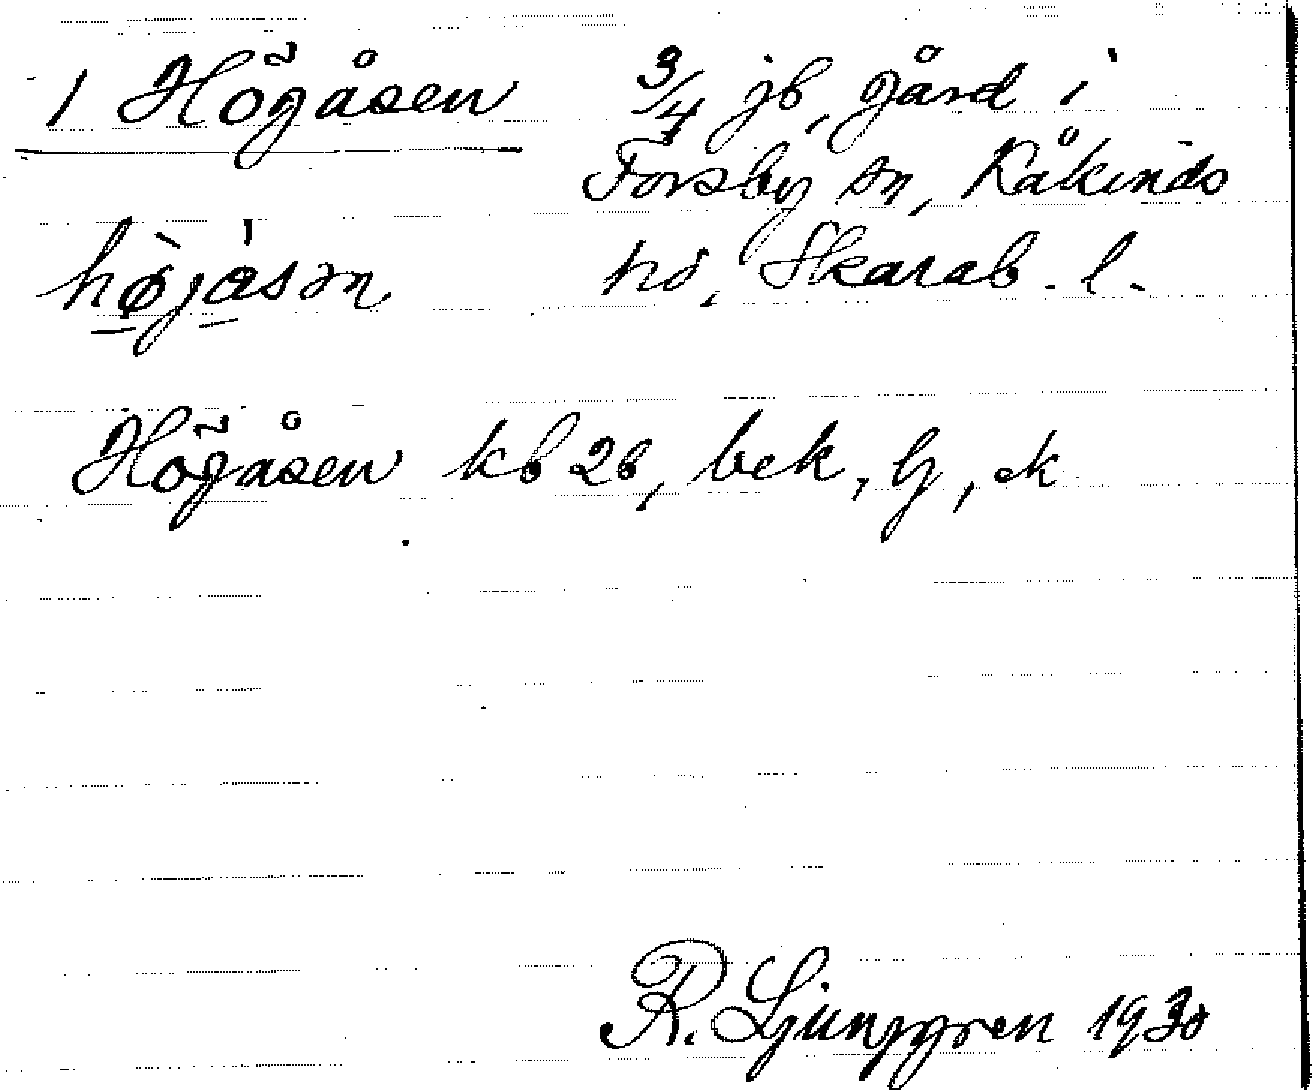 1 Högåsen 3/4 jb, gård i
Forsby sn, Kåkinds
hd, Skarab. l.
Högåsen kb 26, bek, Gj, ek
R. Ljunggren 1930